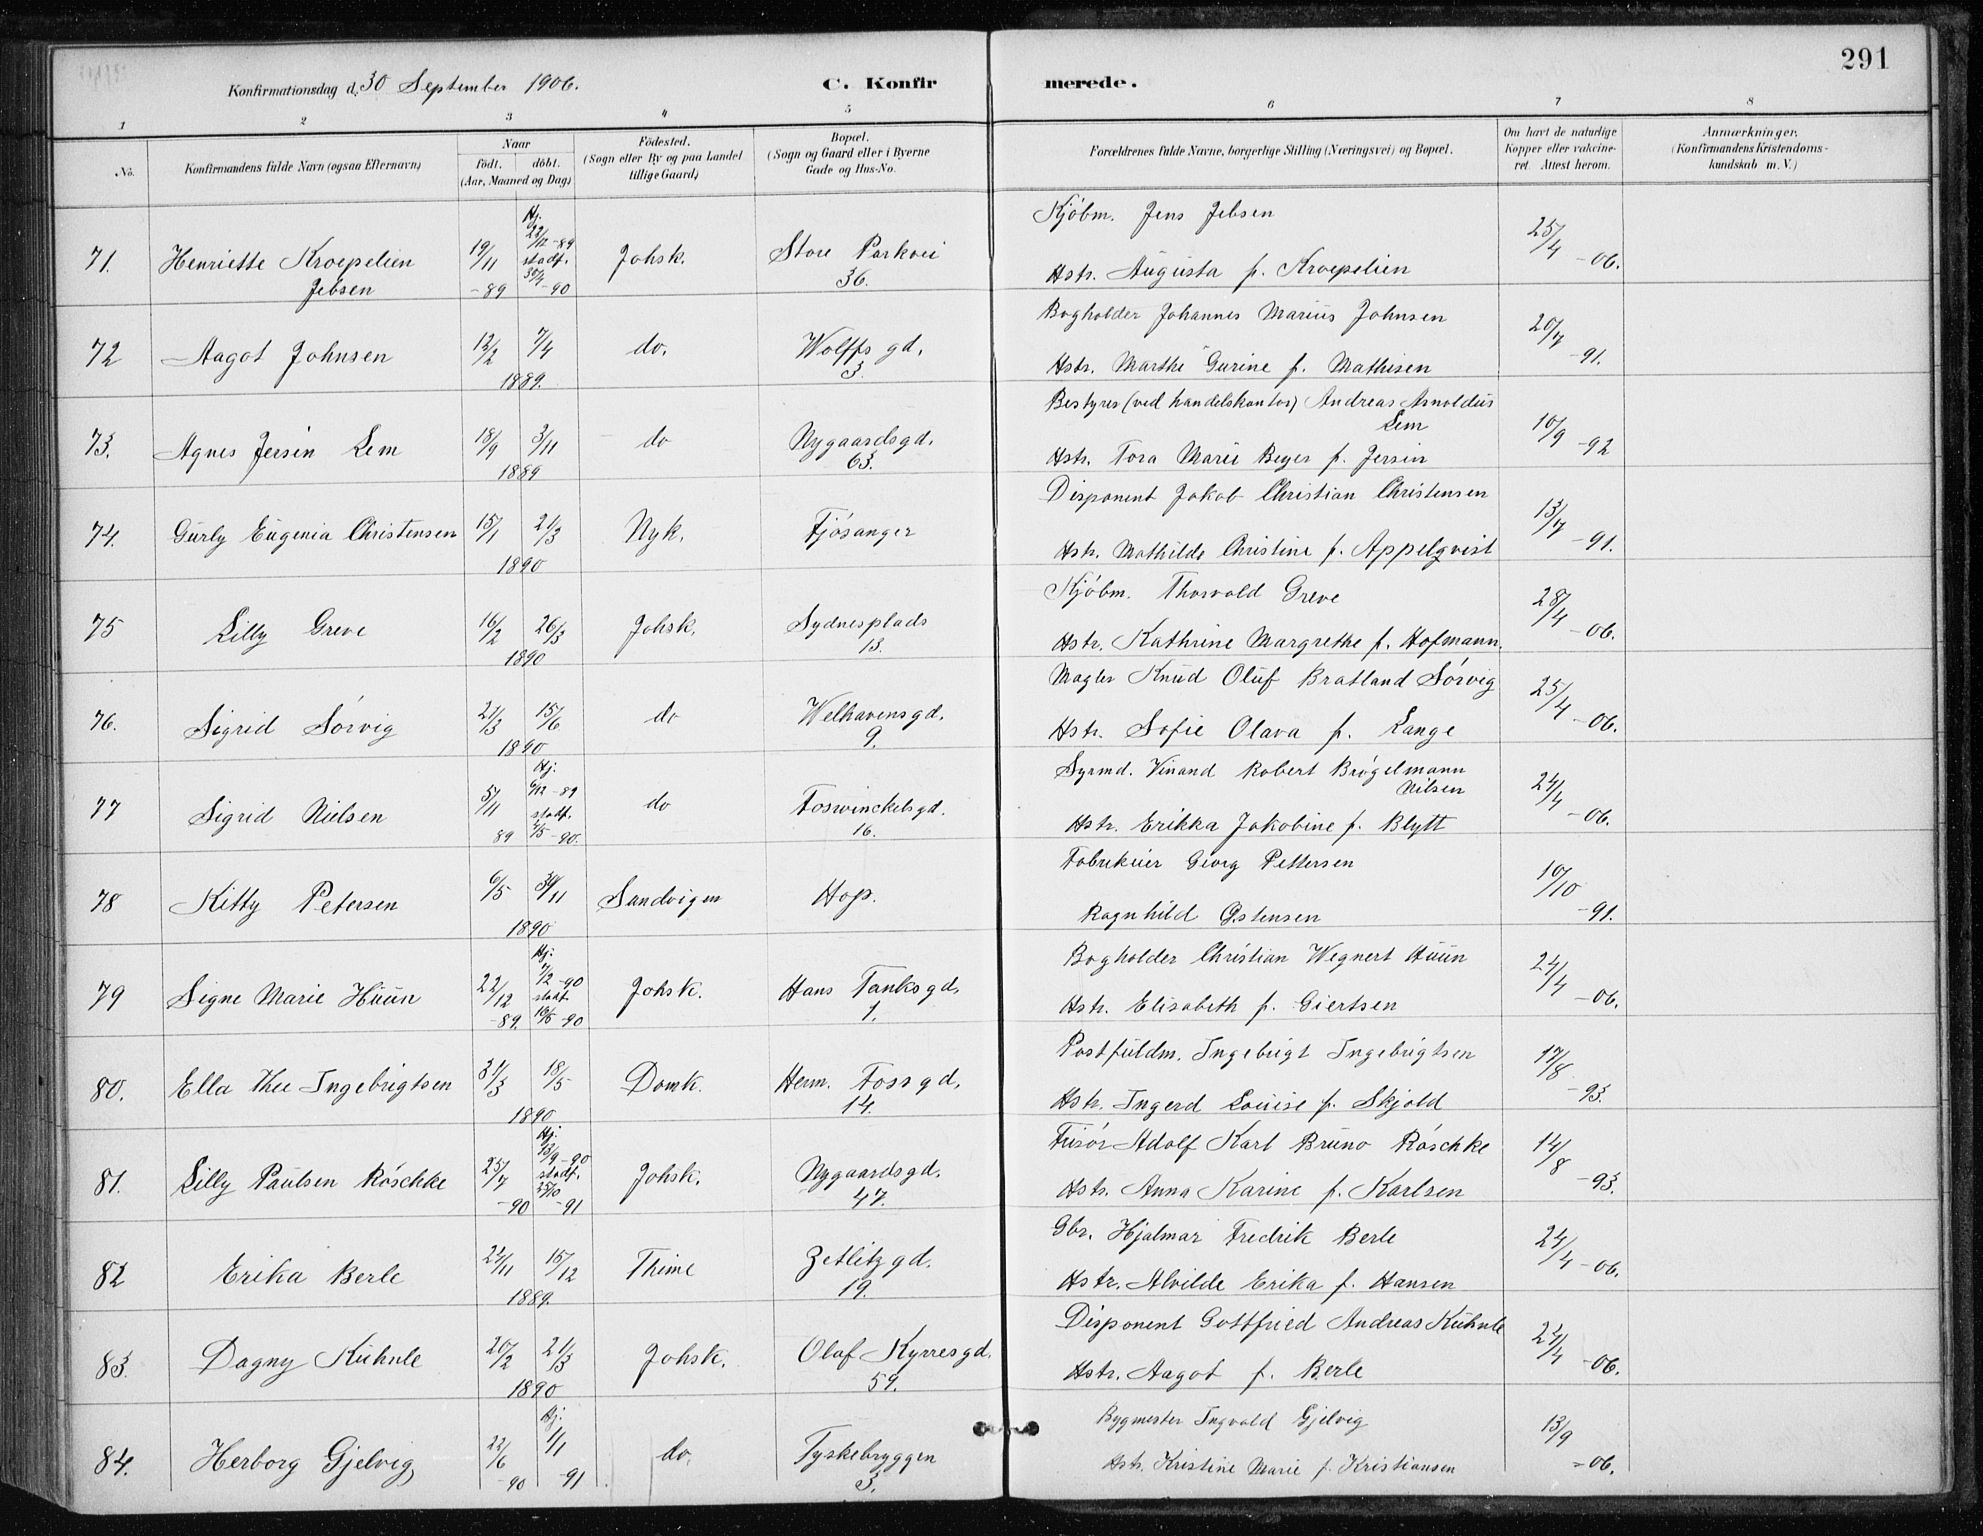 291
Konfirmationsdag d. 30 September 1906.
C. Konfirmerede.
1 2 3 4 5 6 7 8
No.
Konfirmandens fulde Navn (ogsaa Efternavn)
Naar
födt. döbt.
(Aar, Maaned og Dag)
Födested.
(Sogn eller By og paa Landet
tillige Gaard)
Bopæl.
(Sogn og Gaard eller i Byerne
Gade og Hus-No.
Forældrenes fulde Navne, borgerlige Stilling (Næringsvei) og Bopæl.
Om havt de naturlige
Kopper eller vakcine-
ret. Attest herom.
Anmærkninger.
(Konfirmandens Kristendoms-
kundskab m. V.)
71. Henriette Kroepelien Jebsen 19/11 -89 Hj. 22/12 -89 stadf. 30/4 -90 Johsk. Store Parkvei 36.
Kjöbm. Jens Jebsen
Hstr. Augusta f. Kroepelien 25/4 -06.
72 Aagot Johnsen 12/2 7/4 1889. do. Wolffs gd. 3.
Bogholder Johannes Marius Johnsen
Hstr. Marthe Gurine f. Mathisen 20/7 -91.
73. Agnes Jersin Lem 18/9 3/11 1889 do Nygaardsgd. 63.
Bestyrer (ved handelskontor) Andreas Arnoldus Lem
Hstr. Tora Marie Beyer f. Jersin 10/9 -92
74. Gurly Eugenia Christensen 15/1 21/3 1890 Nyk. Fjösanger
Disponent Jakob Christian Christensen
Hstr. Mathilde Christine f. Appelqvist 13/7 -91.
75 Lilly Greve 16/2 26/3 1890 Johsk. Sydnesplads 13.
Kjöbm. Thorvald Greve
Hstr. Kathrine Margrethe f. Hofmann. 28/4 -06.
76. Sigrid Sörvig 21/3 15/6 1890 do Welhavensgd. 9.
Mægler Knud Oluf Bratland Sörvig
Hstr. Sofie Olava f. Lange 25/4 -06.
77 Sigrid Nielsen 5/11 89 Hj. 6/12 -89 stadf. 4/5 -90. do Foswinckelsgd. 16.
Styrmd. Vinand Robert Brögelmann Nilsen
Hstr. Erikka Jakobine f. Blytt 24/4 -06.
78 Kitty Petersen 6/5 30/11 1890 Sandvigen Hop.
Fabrikeier Georg Pettersen
Ragnhild Østensen 10/10 -91.
79 Signe Marie Huun 22/12 -89. Hj. 7/2 -90 stadf. 16/5 -90 Johsk. Hans Tanksgd. 1.
Bogholder Christian Wegnert Huun
Hstr. Elisabeth f. Giertsen 24/4 -06.
80. Ella Thee Ingebrigtsen 31/3 18/5 1890 Domk. Herm. Fossgd. 14.
Postfuldm. Ingebrigt Ingebrigtsen
Hstr. Ingerd Louise f. Skjold 17/8 -93.
81. Lilly Paulsen Röschke 25/7 -90 Hj. 13/9 -90 stadf. 25/10 -91 Johsk. Nygaardsgd. 47.
Frisör Adolf Karl Bruno Röschke
Hstr. Anna Karine f. Karlsen 14/8 -93.
82 Erika Berle 24/11 15/12 1889. Thime Zetlitzgd. 19.
Gbr. Hjalmar Fredrik Berle
Hstr. Alvilde Erika f. Hansen 24/4 -06.
83. Dagny Kuhnle 20/2 21/3 1890 Johsk. Olaf Kyrresgd. 59.
Disponent Gottfried Andreas Kuhnle
Hstr. Aagot f. Berle 24/4 -06.
84. Herborg Gjelvig 22/6 -90 Hj. 1/1 -91 do. Tyskebryggen 3.
Bygmester Ingvald Gjelvig
Hstr. Kristine Marie f. Kristiansen 13/9 -06.